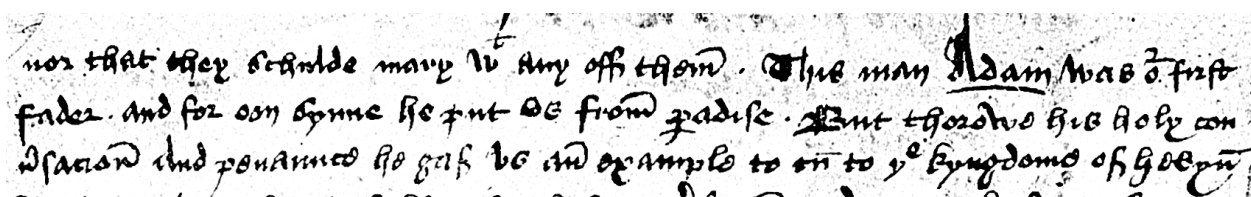 nor that they schulde mary wt any off them̄ . This man Adam was or̄ first
fader . and for oon synne he put vs from̄ ꝑadise . But thorowe his holy con
ūsacion̄ and penaunce he gaf vs an̄ example to cū to yᵉ kyngdome of heuyn̄